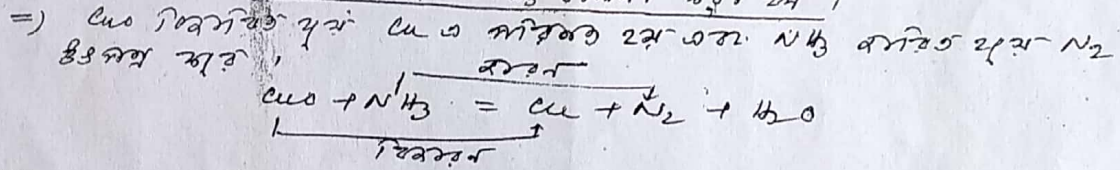 =) CuO বিজারিত হয়ে Cu এ পরিণত হয় এবং NH3 জারিত হয়ে N2
উৎপন্ন করে।
জারন
CuO + NH3 = Cu + N2 + H2O
বিজারন